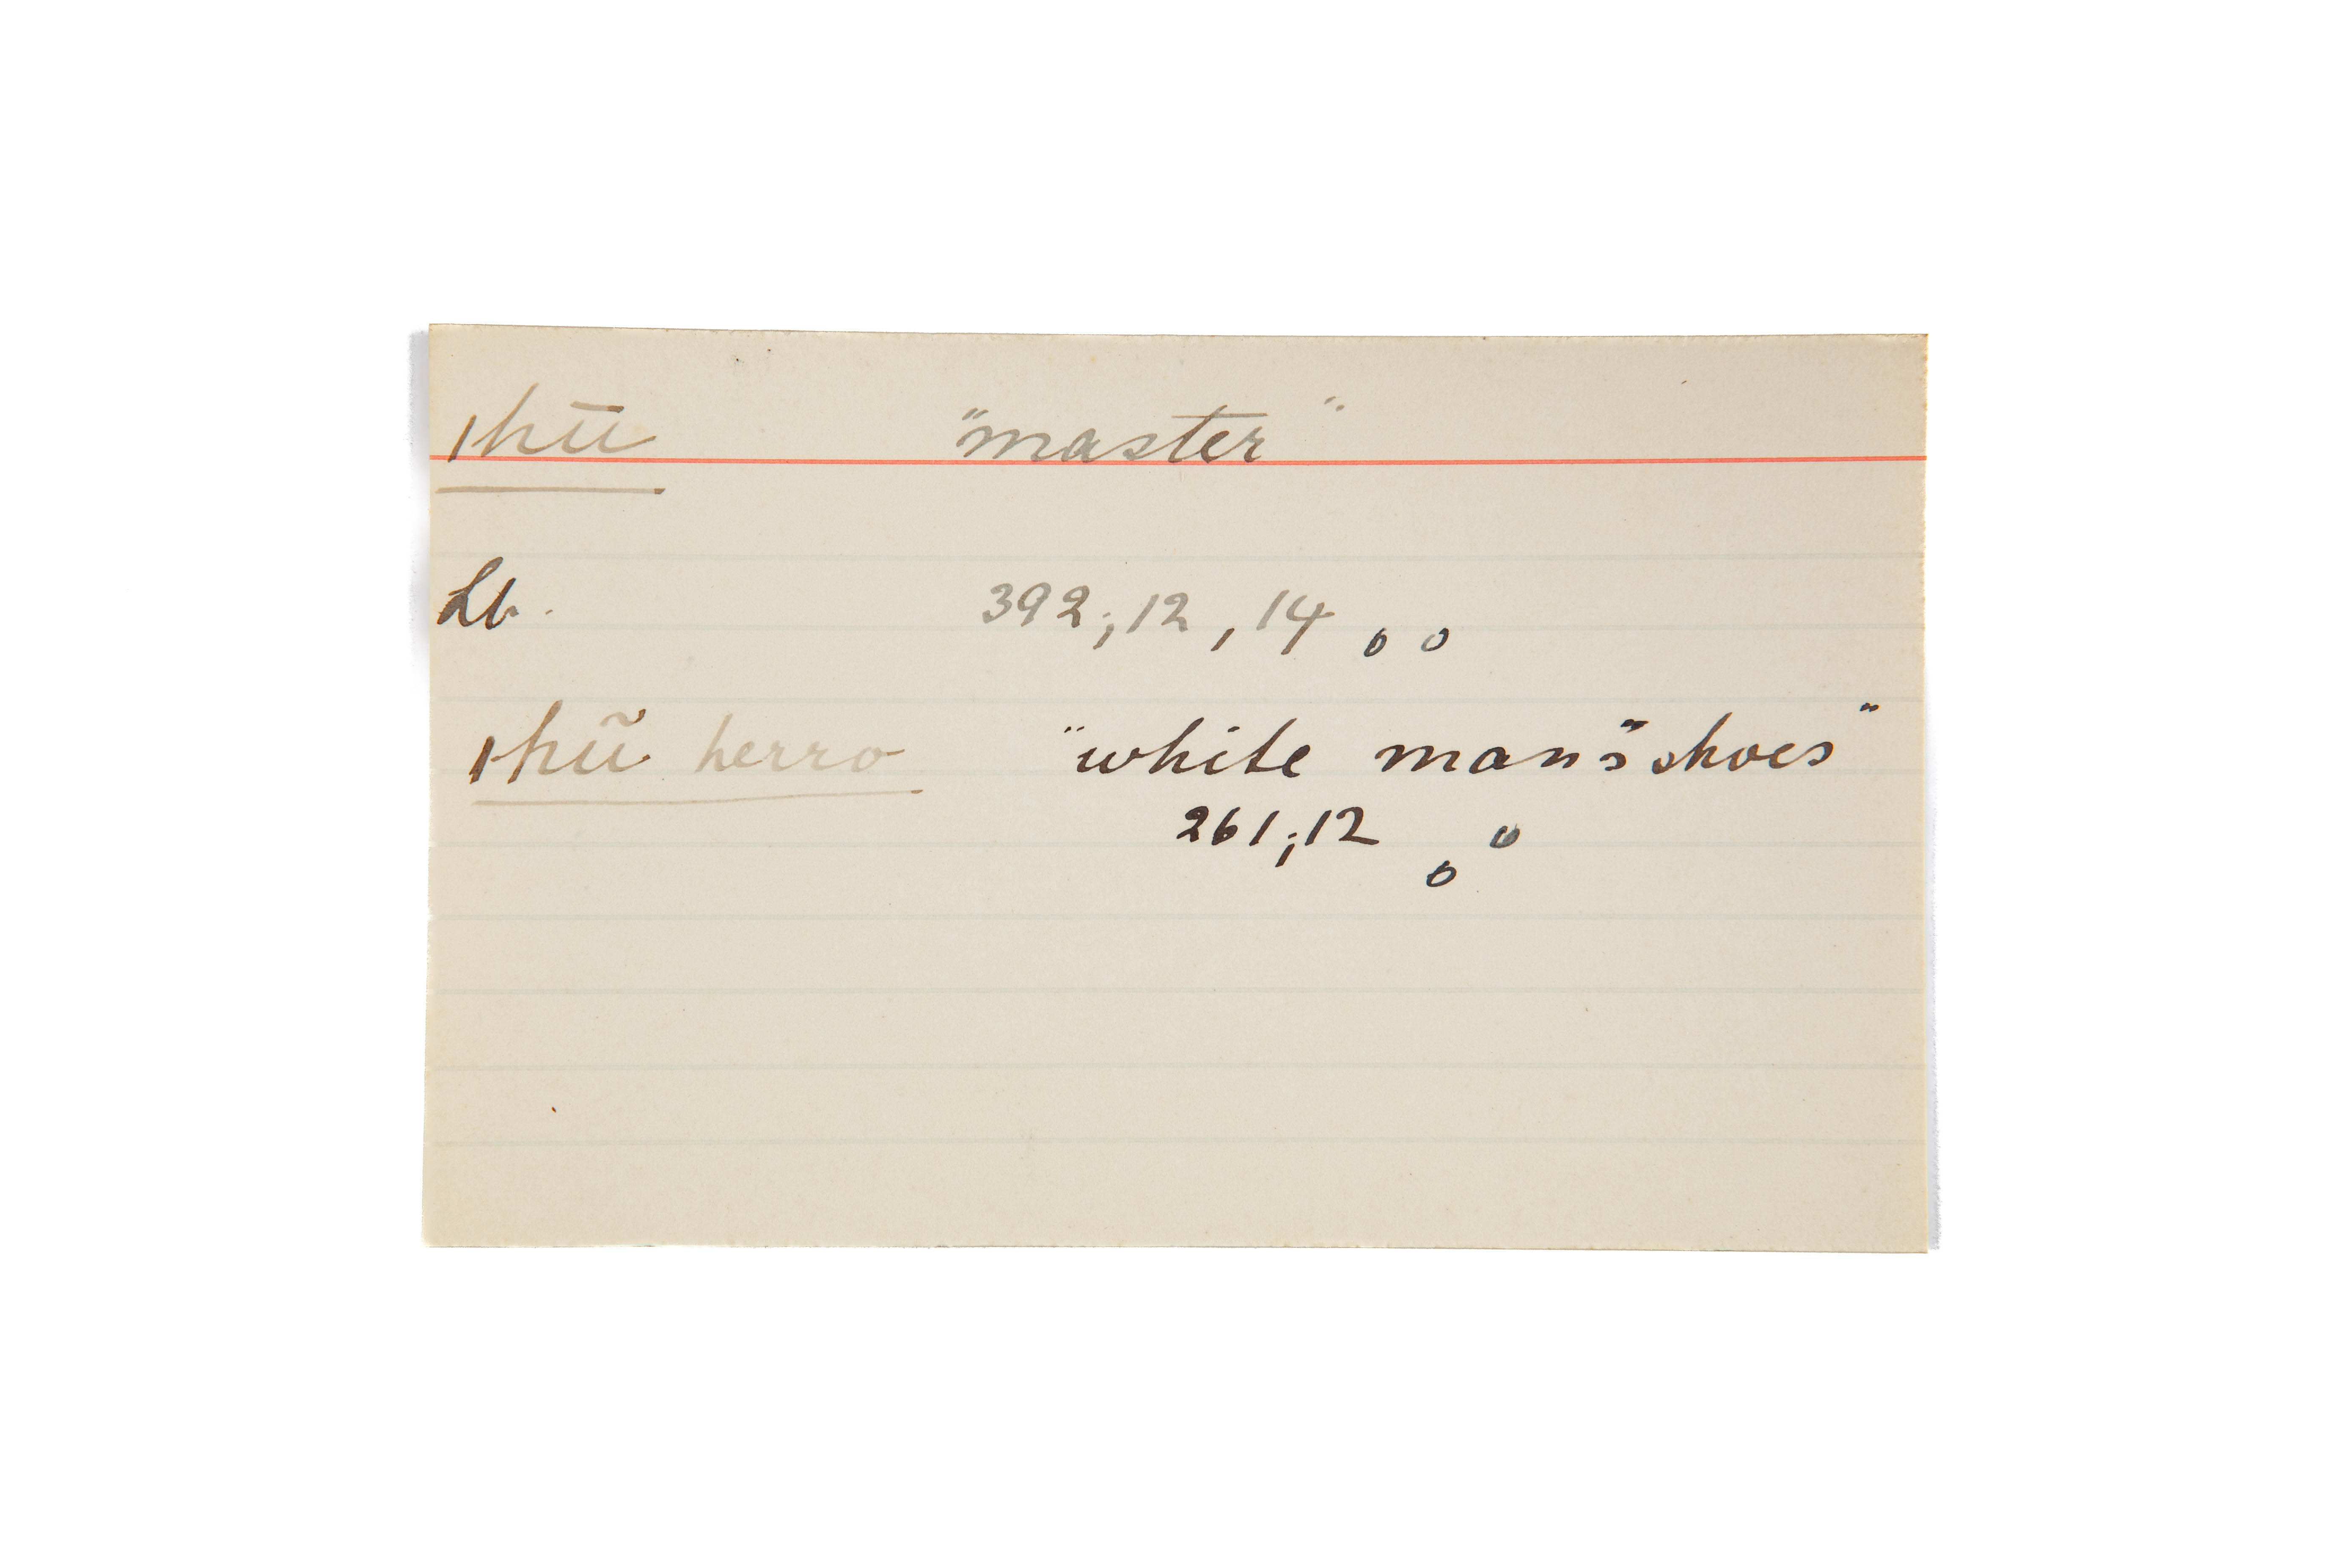 ıhū "master"
Lb. 392;12, 14 o o
ıhū̃ herro "white man's" shoes"
261;12 o o